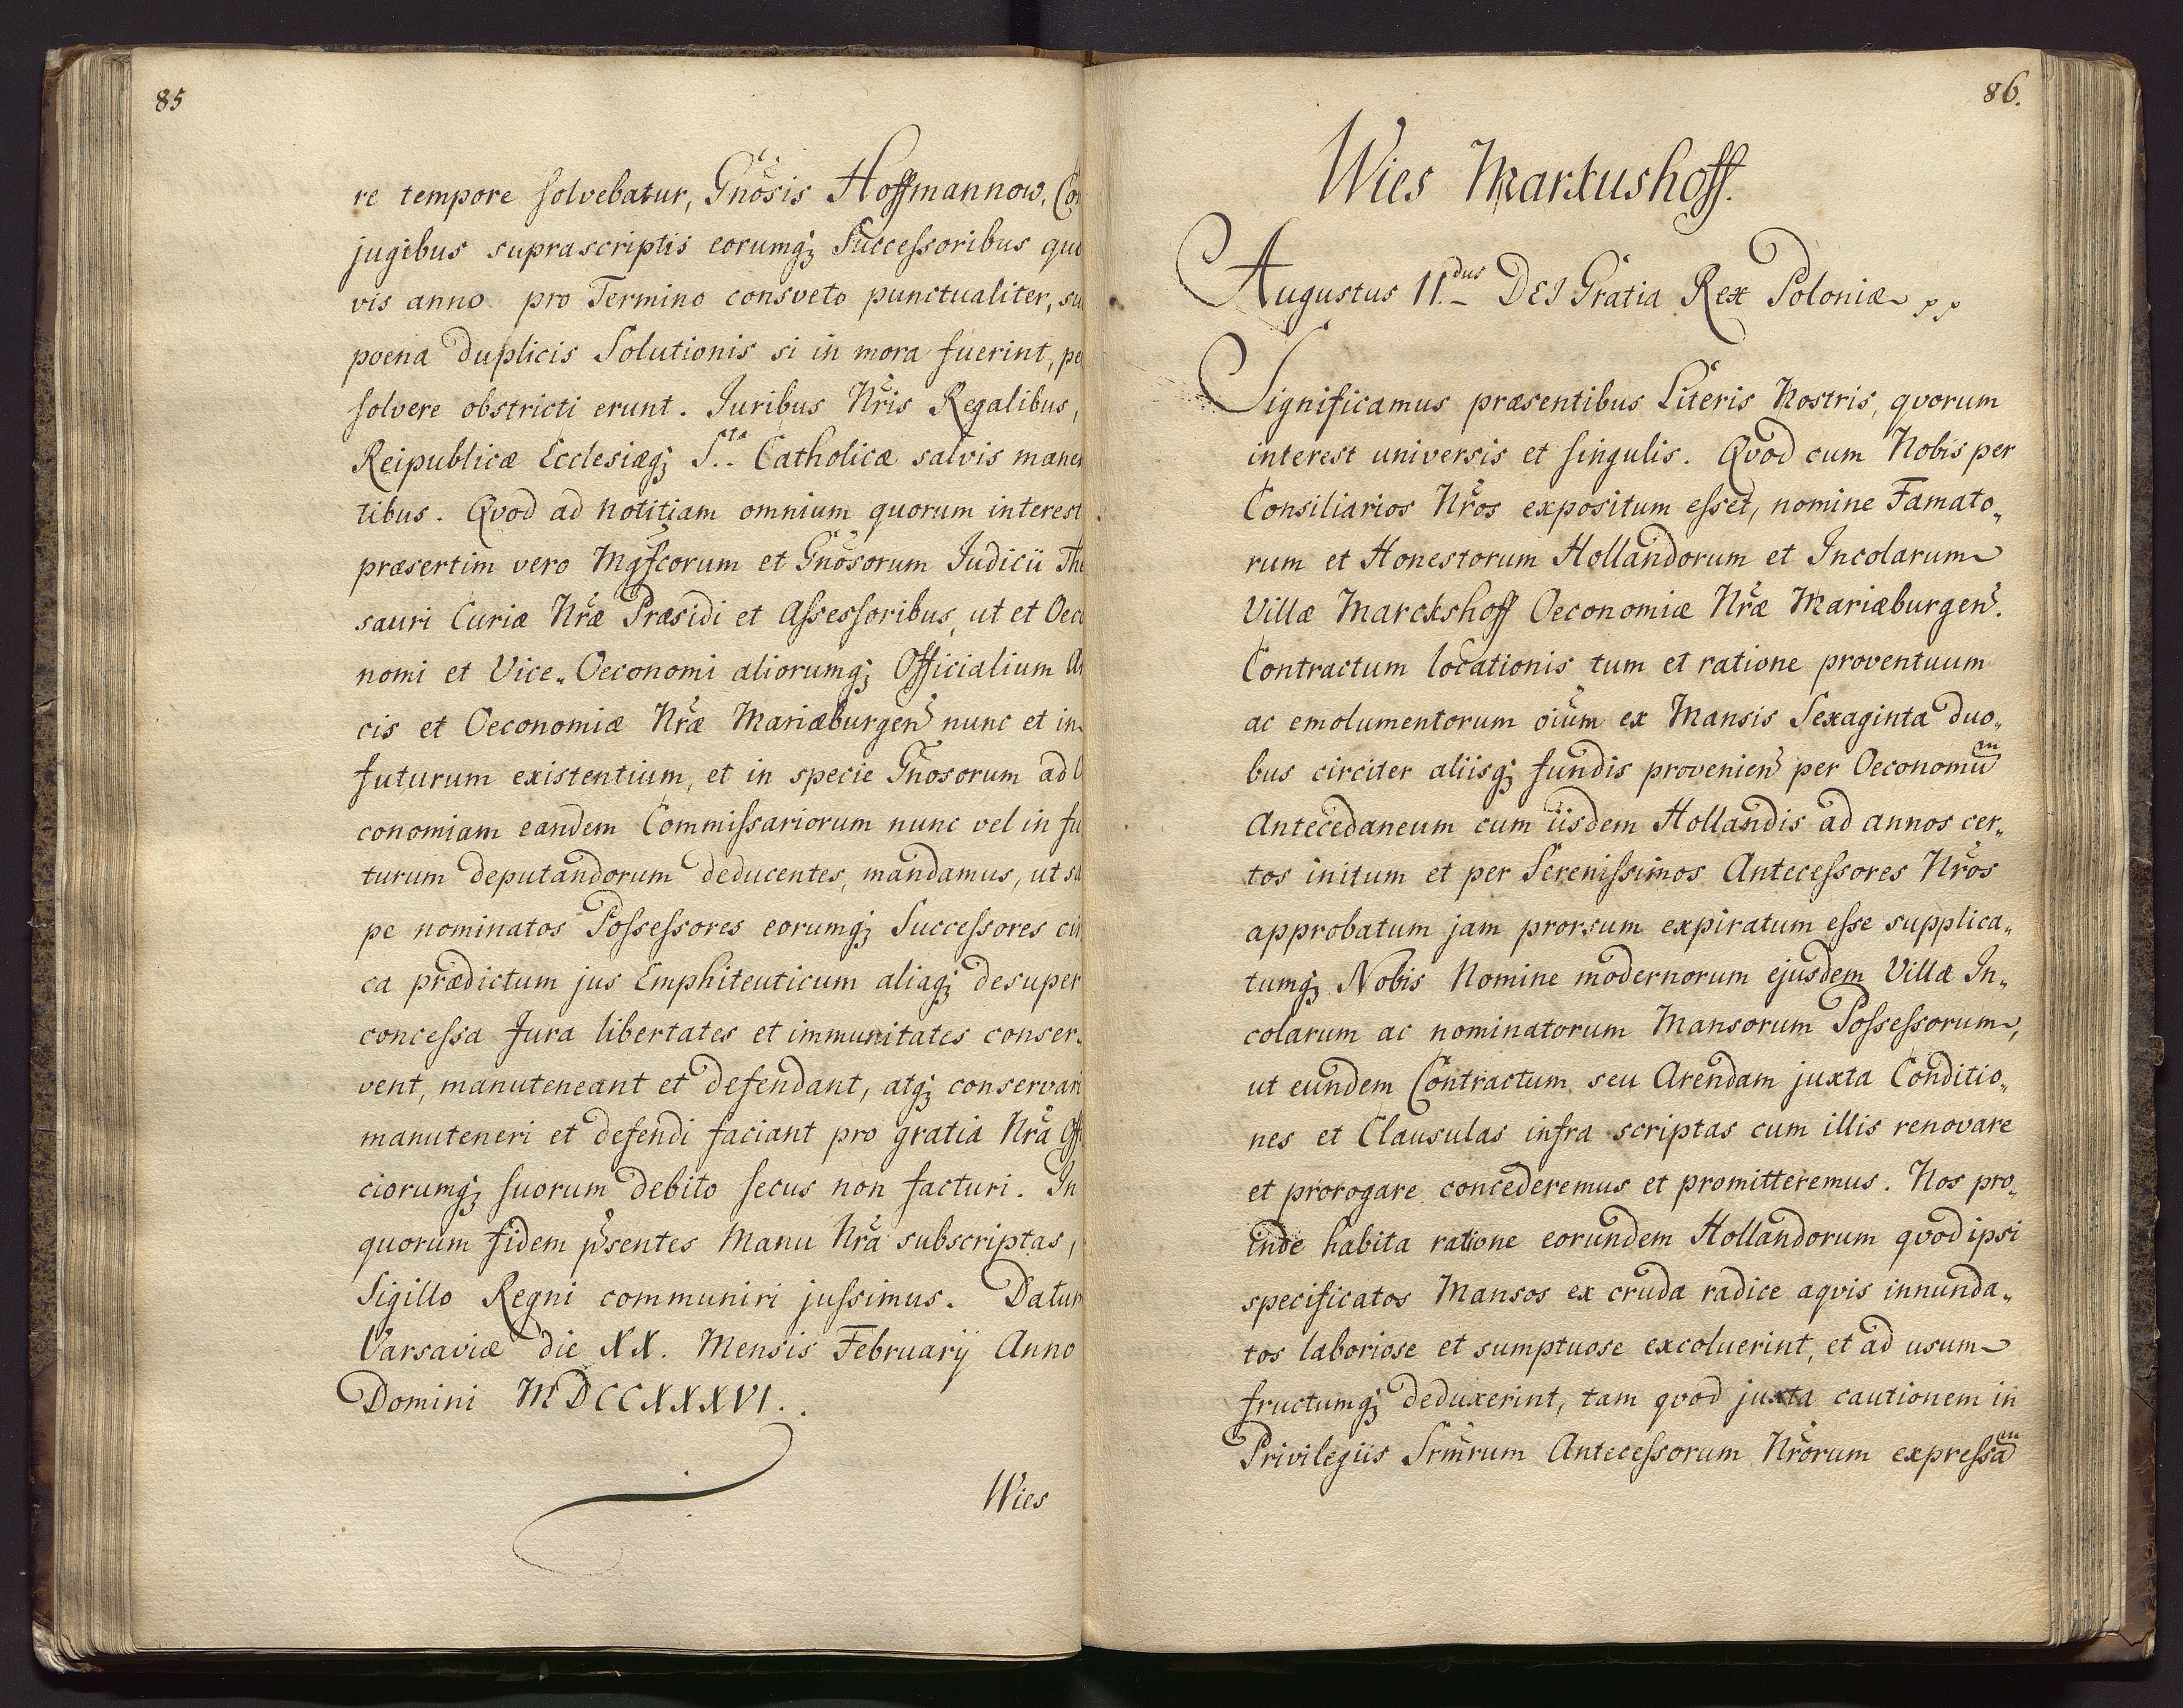 85
re tempore solvebatur, Gnosis Hoffmannow, Co
jugibus suprascriptis eorumq; Successoribus qui
vis anno pro Termino consveto punctualiter, su
poena duplicis Solutionis si in mora fuerint, pe
solvere obstricti erunt. Juribus Nris Regalibus,
Reipublicæ Ecclesiæq; S.ta Catholicæ salvis manen
tibus. Qvod ad notitiam omnium quorum interest
præsertim vero Mgfcorum et Gnosorum Judicii The
sauri Curiæ Nræ Præsidi et Assessoribus, ut et Oeco
nomi et Vice„Oeconomi aliorumq; Officialium Ar
cis et Oeconomiæ Nræ Mariæburgen nunc et in
futurum existentium, et in specie Gnosorum ad
conomiam eandem Commissariorum nunc vel in fu
turum deputandorum deducentes, mandamus, ut sæ
pe nominatos Possessores eorumq; Successores cir
ca prædictum jus Emphiteuticum aliaq; desuper
concessa Jura libertates et immunitates conser„
vent, manuteneant et defendant, atq; conservari
manuteneri et defendi faciant pro gratia Nra Offi
ciorumq; suorum debito secus non facturi. In
quorum fidem psentes Manu Nra subscriptas,
Sigillo Regni communiri jussimus. Datum
Varsaviæ die XX. Mensis Februarÿ Anno
Domini MDCCXXXVI.
Wies
86.
Wies Markushoff.
Augustus II.dus DEI Gratia Rex Poloniæ pp
Significamus præsentibus Literis Nostris, qvorum
interest universis et singulis. Qvod cum Nobis per
Consiliarios Nros expositum esset, nomine Famato„
rum et Honestorum Hollandorum et Incolarum
Villæ Marckshoff Oeconomiæ Nræ Mariæburgen.
Contractum locationis tum et ratione proventuum
ac emolumentorum oium ex Mansis Sexaginta duo„
bus circiter aliisq; fundis provenien per Oeconomum
Antecedaneum cum iisdem Hollandis ad annos cer„
tos initum et per Serenissimos Antecessores Nros
approbatum jam prorsum expiratum esse supplica„
tumq; Nobis Nomine modernorum ejusdem Villæ In„
colarum ac nominatorum Mansorum Possessorum,
ut eundem Contractum seu Arendam juxta Conditio„
nes et Clausulas infra scriptas cum illis renovare
et prorogare concederemus et promitteremus. Nos pro„
inde habita ratione eorundem Hollandorum qvod ipsi
specificatos Mansos ex cruda radice aqvis innunda„
tos laboriose et sumptuose excoluerint, et ad usum
fructumq; deduxerint, tam qvod juxta cautionem in
Privilegiis Srmrum Antecessorum Nrorum expressam